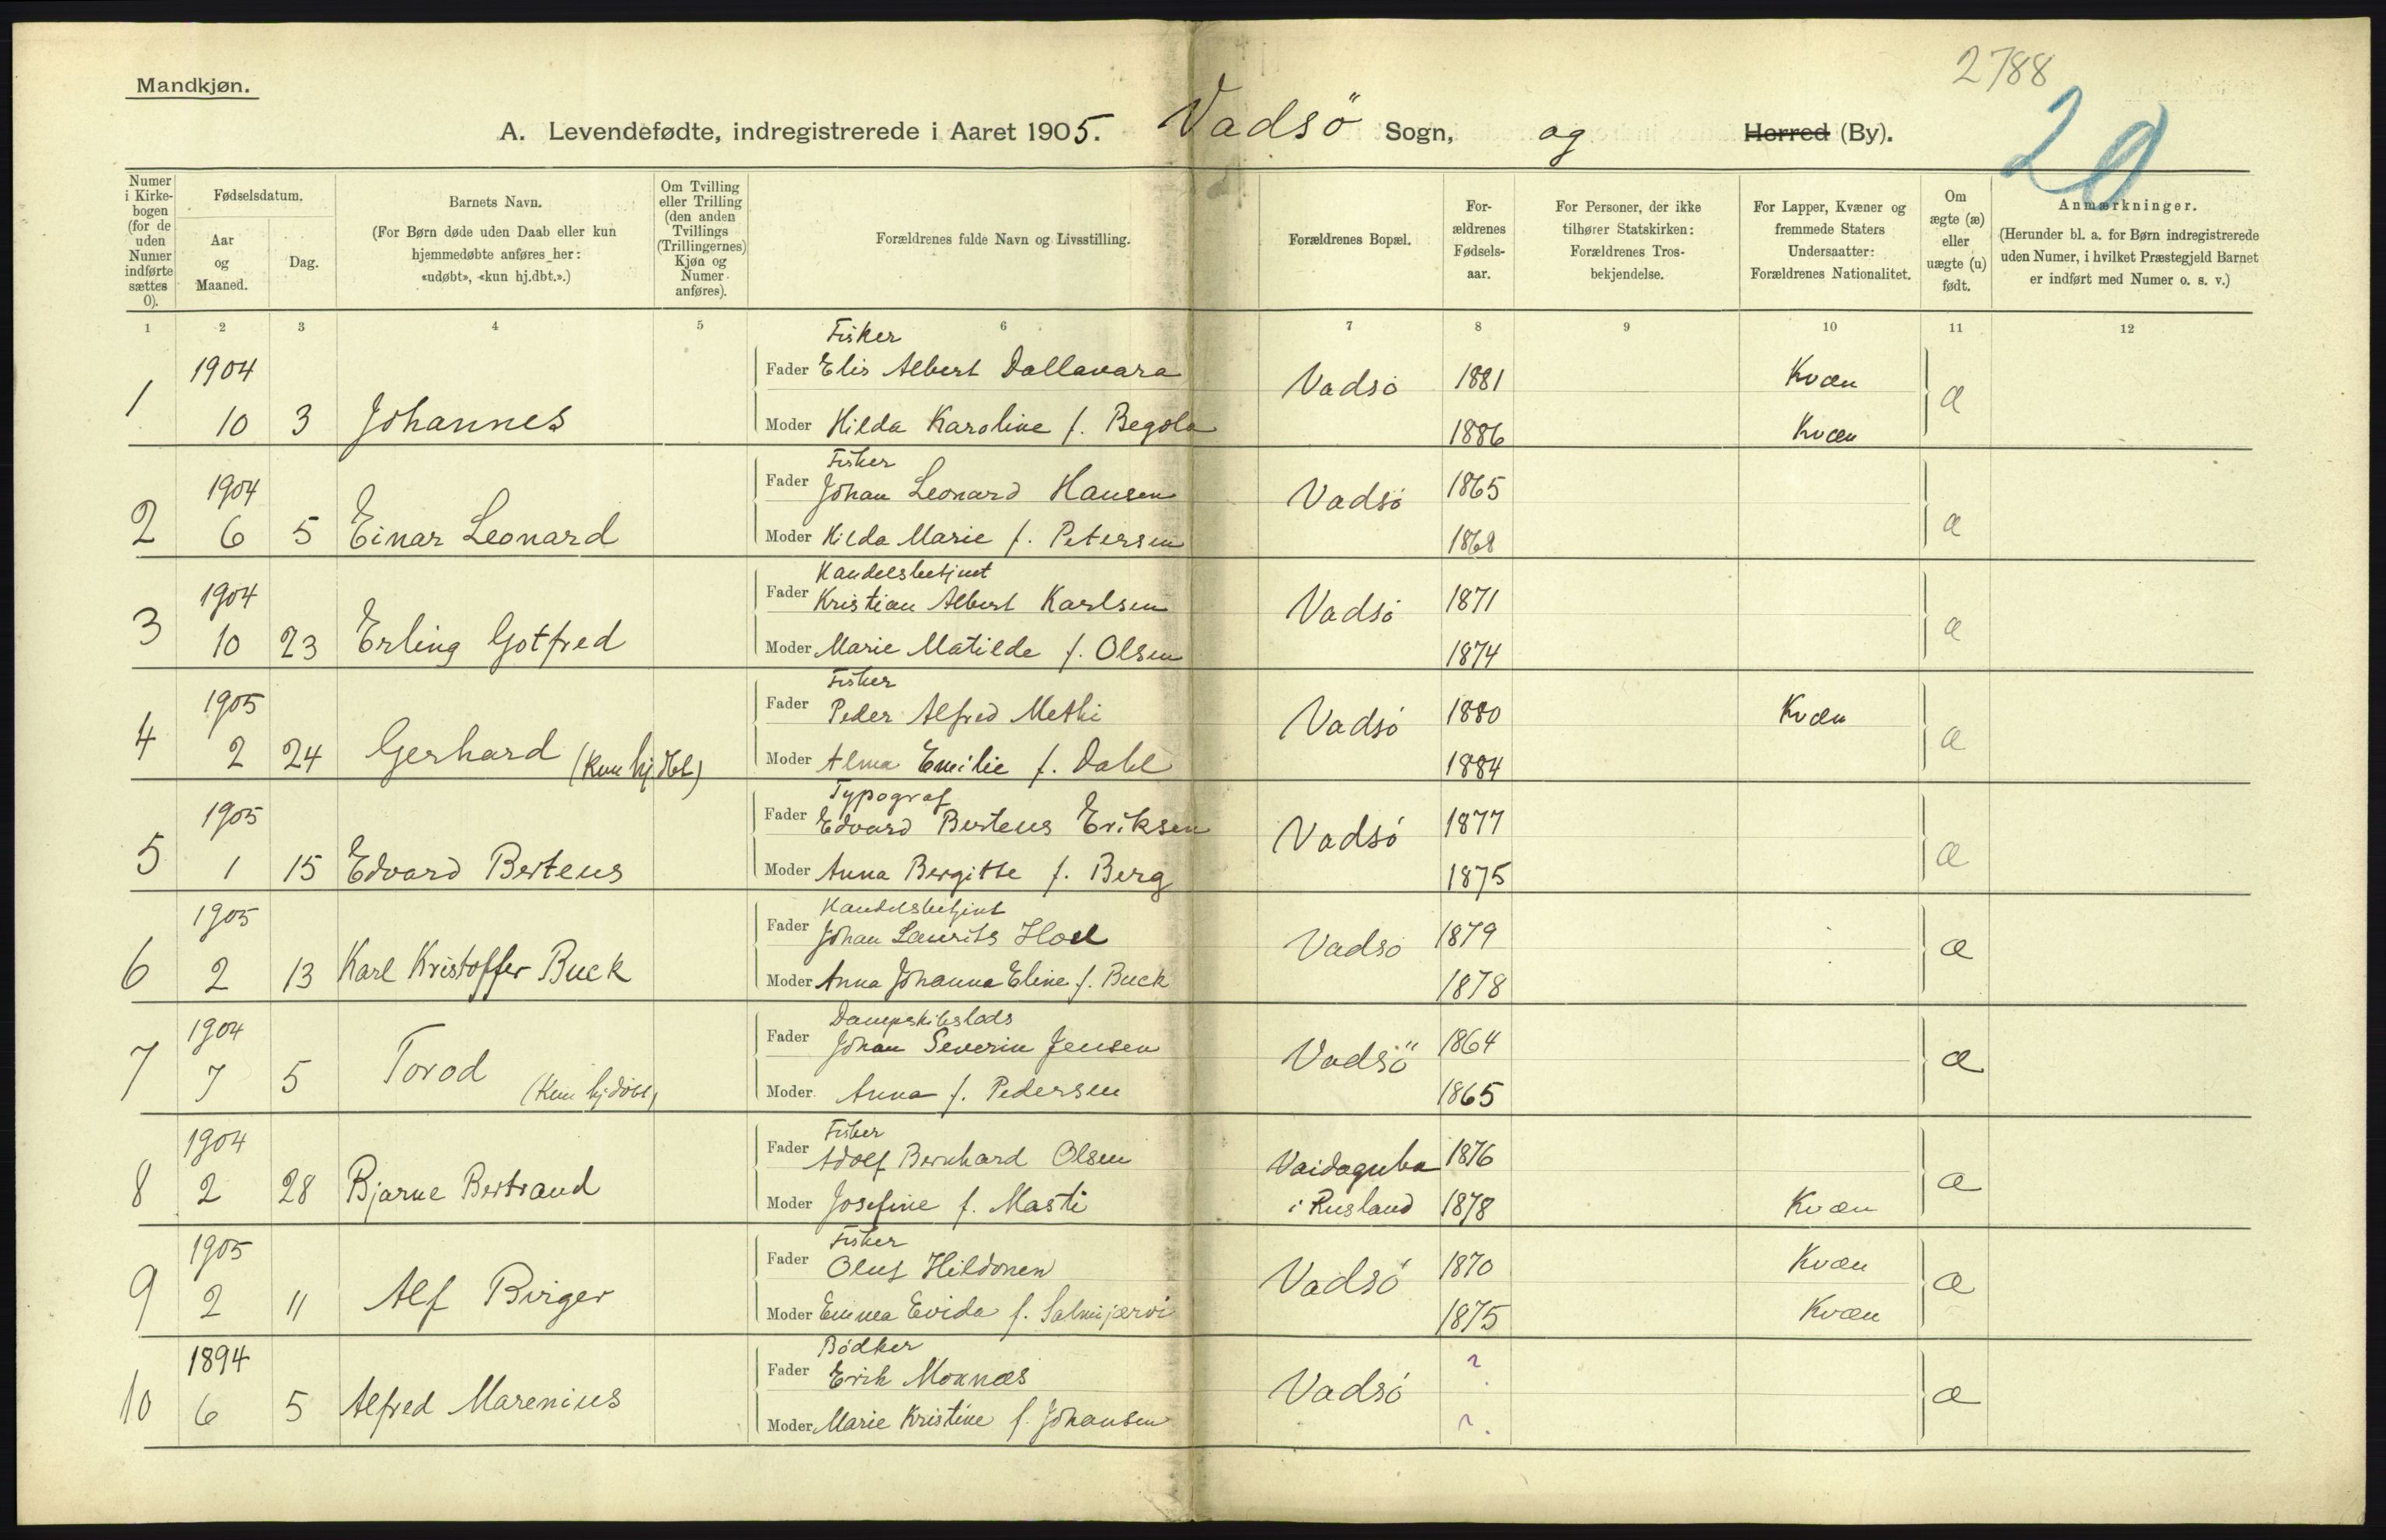 2788
Mandkjøn.
A. Levendefødte, indregistrerede i Aaret 1905. Vadsö Sogn, og Herred (By).
20
Numer i Kirkebogen (for de uden Numer indførte sættes 0).
Fødselsdatum.
Aar og Maaned.
Dag.
Barnets Navn.
(For Børn døde uden Daab eller kun hjemmedøbte anføres her: «udøbt», «kun hj.dbt.».)
Om Tvilling eller Trilling (den anden Tvillings (Trillingernes) Kjøn og Numer anføres).
Forældrenes fulde Navn og Livsstilling.
Forældrenes Bopæl.
Forældrenes Fødselsaar.
For Personer, der ikke tilhører Statskirken: Forældrenes Trosbekjendelse.
For Lapper, Kvæner og fremmede Staters Undersaatter: Forældrenes Nationalitet.
Om ægte (æ) eller uægte (u) født.
Anmærkninger.
(Herunder bl. a. for Børn indregistrerede uden Numer, i hvilket Præstegjeld Barnet er indført med Numer o. s. v.)
1 2 3 4 5 6 7 8 9 10 11 12
Fisker
1904 Fader Elis Albert Dallavara Vadsö 1881 Kvæn æ
1 10 3 Johannes Moder Hilda Karoline f. Begola 1886 Kvæn
Fisker
1904 Fader Johan Leonard Hansen Vadsö 1865
2 6 5 Einar Leonard Moder Hilda Marie f. Petersen 1868 æ
Handelsbetjent
1904 Fader Kristian Albert Karlsen Vadsö 1871
3 10 23 Erling Gotfred Moder Marie Matilde f. Olsen 1874 æ
Fisker
1905 Fader Peder Alfred Methi Vadsö 1880 Kvæn
4 2 24 Gerhard (Kun hj dbt) Moder Alma Emilie f. Dahl 1884 æ
Typograf
1905 Fader Edvard Berteus Eriksen Vadsö 1877
5 1 15 Edvard Berteus Moder Anna Bergitte f. Berg 1875 æ
Handelsbetjent
1905 Fader Johan Laurits Hoel Vadsö 1879 æ
6 2 13 Karl Kristoffer Buck Moder Anna Johanna Eline f. Buck 1878
Dampskibslods
1904 Fader Johan Severin Jensen Vadsö 1864 æ
7 7 5 Torod (Kun hjdöbt) Moder Anna f. Pedersen 1865
Fisker
1904 Fader Adolf Bernhard Olsen Vaidaguba 1876
8 2 28 Bjarne Bertrand Moder Josefine f. Masti i Rusland 1878 Kvæn æ
Fisker
1905 Fader Oluf Hildonen Vadsö 1870 Kvæn æ
9 2 11 Alf Birger Moder Emma Evida f. Salmijærvi 1875 Kvæn
Bödker
1894 Fader Erik Moxnæs Vadsö ?
10 6 5 Alfred Marenius Moder Marie Kristine f. Johansen ? æ